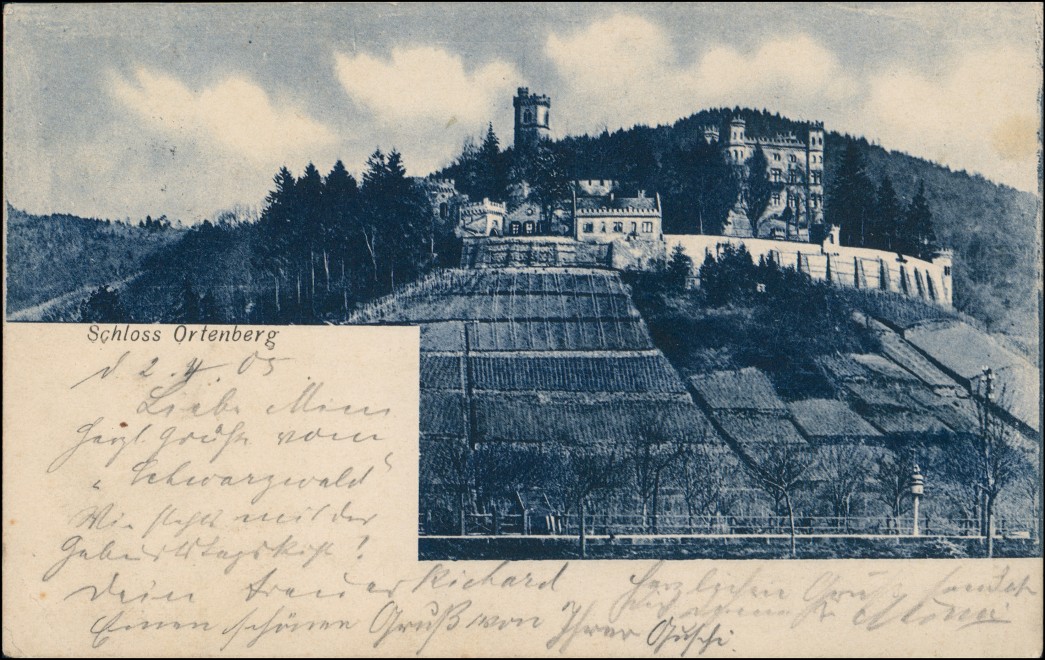 Schloss Ortenberg
d 2. 4. 05
Liebe
Herzl. Grüße vom
„Schwarzwald“
Wie stehts mit der
Geburtstagskist!
Dein Richard
Einen schönen Gruß von Ihrer
Herzlichen Gruß sendet